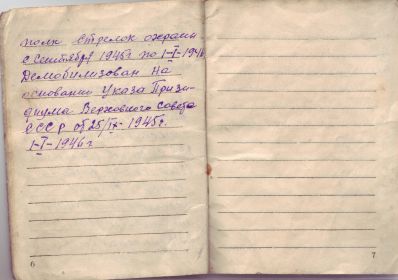 полк стрелок охраны
с сентября 1945г по 1-I-1946
Демобилизован на
основании Указа Прези-
диума Верховного Совета
СССР от 25/IX-1945г.
1-I-1946г
6
7